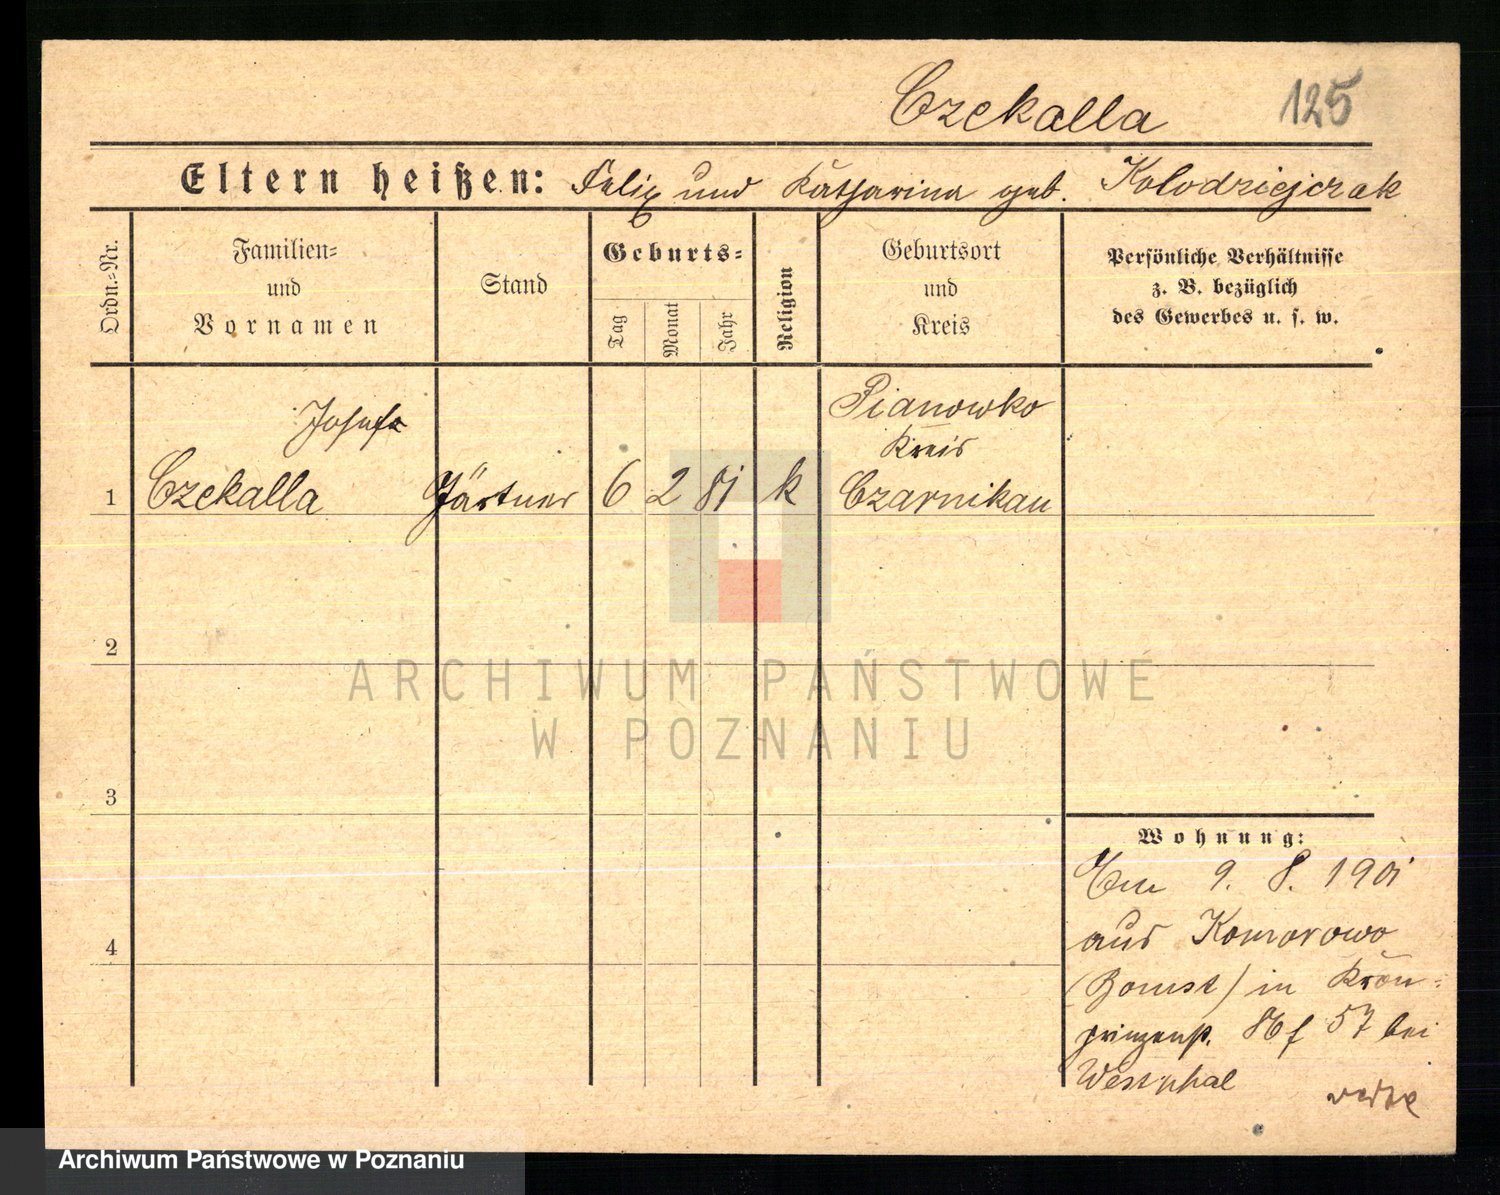 Czekalla 125
Eltern heißen: Felix und Katharina geb. Kolodziejczak
Ordn.=Nr.
Familien=
und
Vornamen
Stand
Geburts=
Tag
Monat
Jahr
Religion
Geburtsort
und
Kreis
Persönliche Verhältnisse
z. B. bezüglich
des Gewerbes u. s. w.
Josef Pianowko
Kreis
1 Czekalla Gärtner 6 2 81 k Czarnikau
2
ARCHIWUM PAŃSTWOWE
W POZNANIU
3
Wohnung:
9. 8. 1901
4 aus Komorowo
(Bomst) in Kron=
prinzenst. 57 bei
Westphal
Archiwum Państwowe w Poznaniu